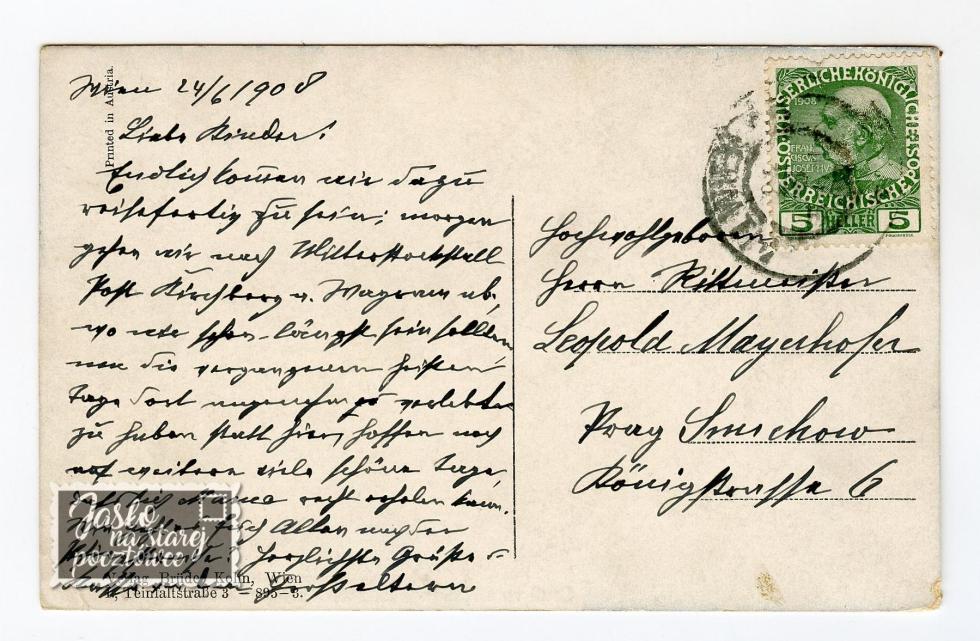 Printed in Austria.
Wien 24/6 1908
Liebe Kinder!
Endlich kommen wir dazu
reisefertig zu sein; morgen
gehen wir nach Winterstockstall
Post Kirchberg a. Wagram ab,
wo wir schon längst sein sollten
um die vergangenen heißen
Tage dort angenehm verlebt
zu haben statt hier, hoffen noch
auf weitere viele schöne Tage
Mama recht erholen kann.
Allen
herzlichste Grüße
Jasło
na starej
pocztówce
Verlag Brüder Kohn, Wien
I., Teinfaltstraße 3 – 895–3.
KAISERLICHEKÖNIGLICHE
ÖSTERREICHISCHE POST
1908
FRAN
CISCVS
IOSEPH I
5 HELLER 5
WIEN
Hochwohlgeboren
Herrn Rittmeister
Leopold Mayerhofer
Prag Smichow
Königstrasse 6